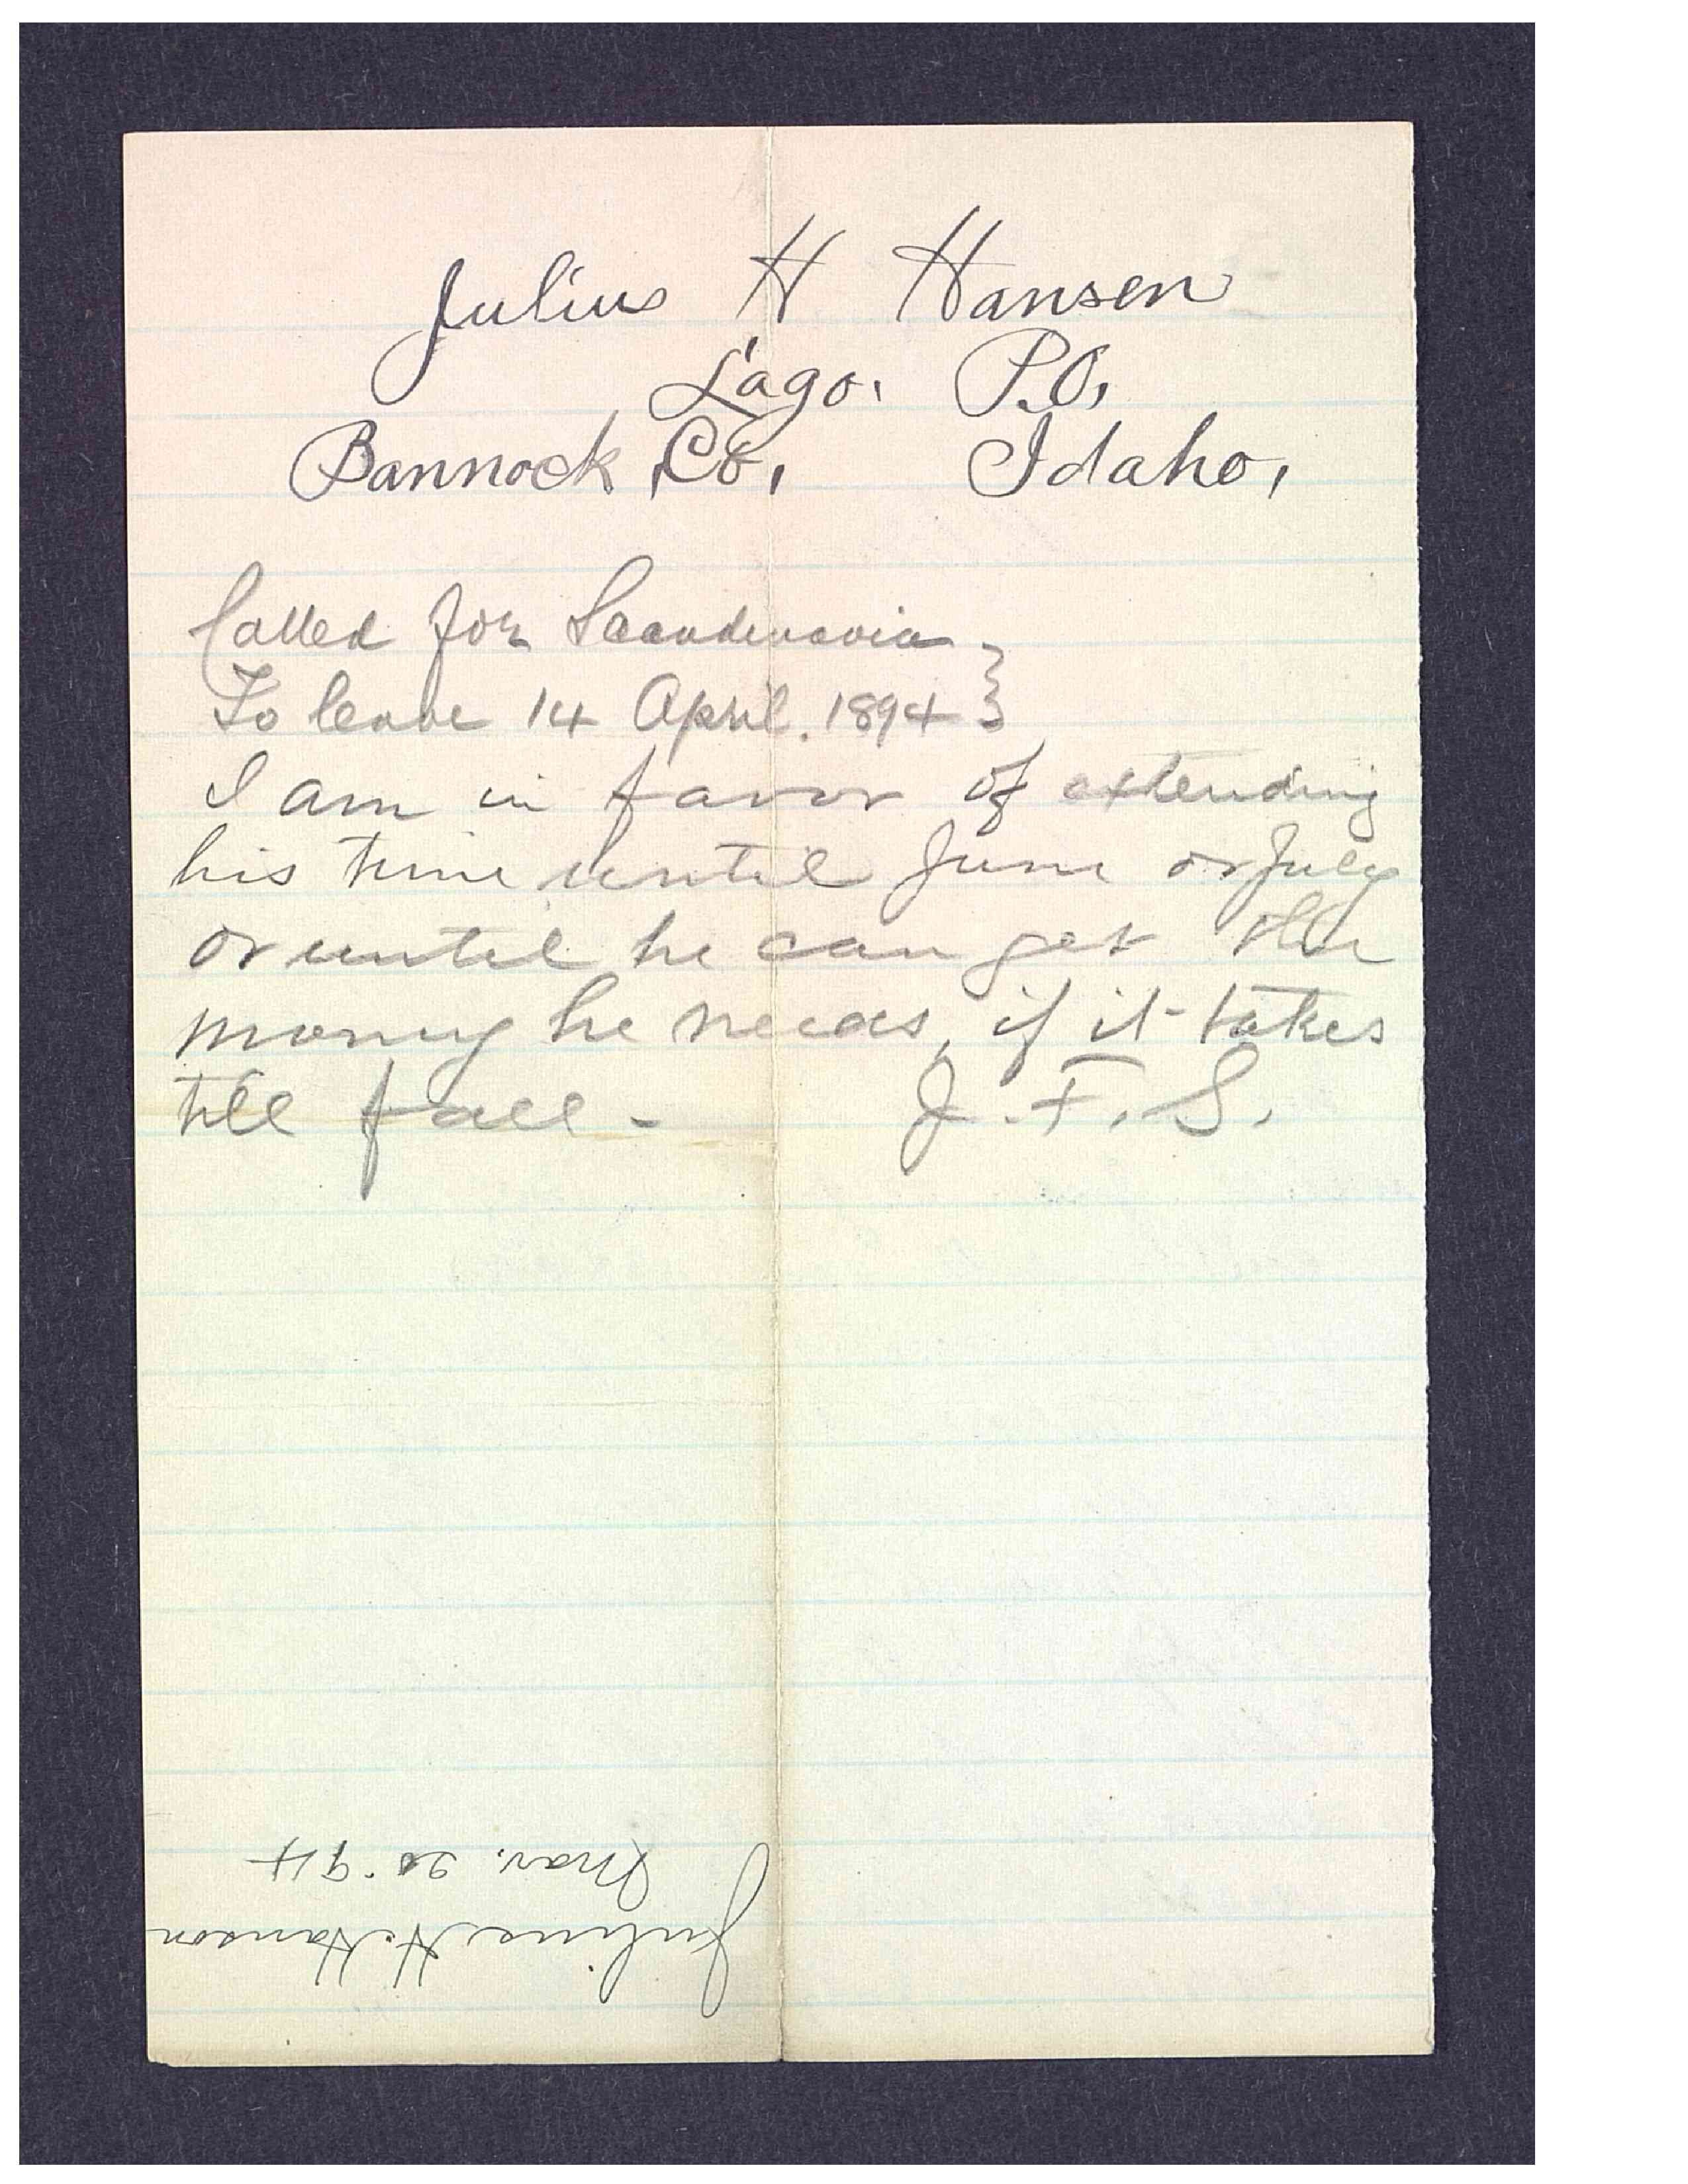 Julius H Hansen
Lago. P.O,
Bannock, Co, Idaho,
Called for Scandenavia }
To leave 14 April. 1894 }
I am in favor of extending
his time until June or July
or until he can get the
money he needs, if it takes
till fall - J. F. S.
Julius H. Hanson
Mar. 20 '94